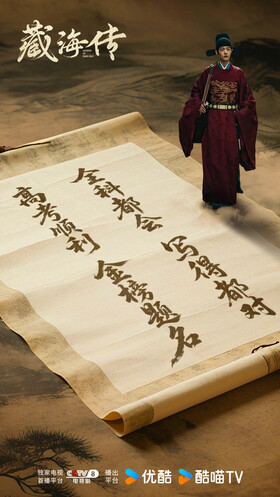 藏海传
全科都会
写得都对
高考顺利
金榜题名
独家电视
首播平台
CCTV 8
电视剧
播出
平台
优酷
酷喵TV